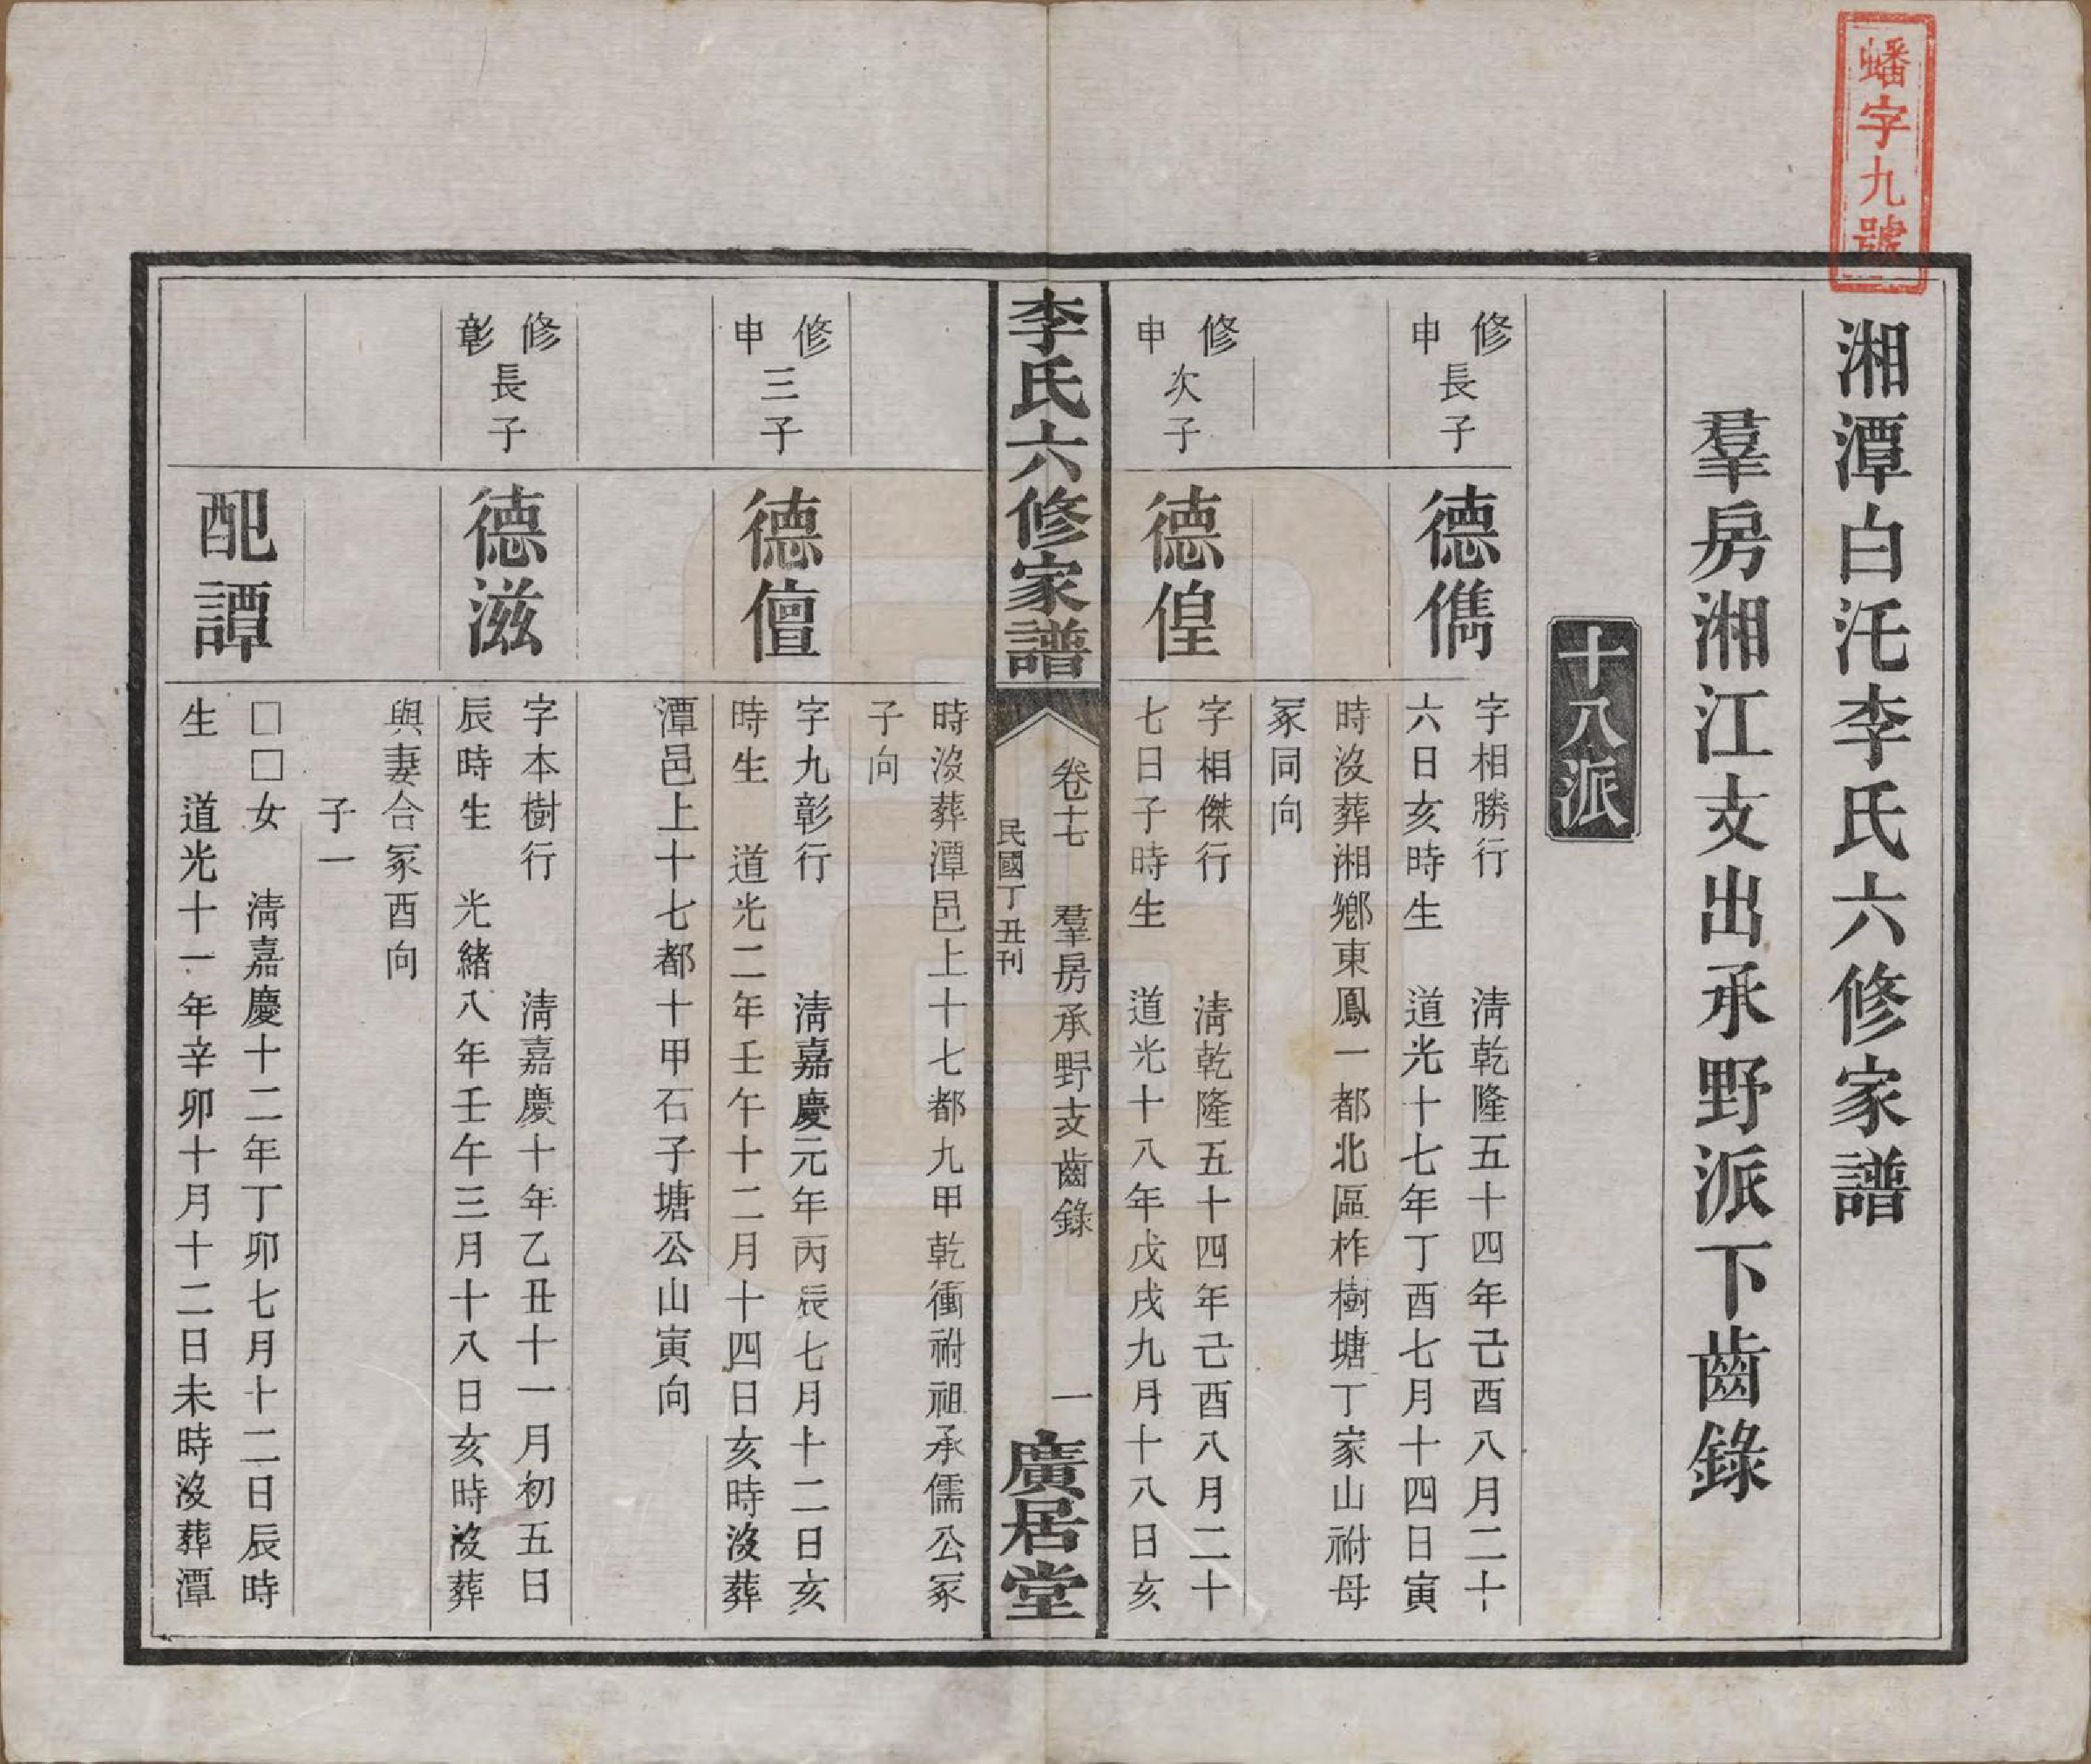 蟠字九號
湘潭白汑李氏六修家譜
羣房湘江支出承野派下齒錄
十八派
修申長子
德儁
字相勝行　清乾隆五十四年己酉八月二十
六日亥時生　道光十七年丁酉七月十四日寅
時沒葬湘鄉東鳳一都北區柞樹塘丁家山祔母
冢同向
修申次子
德偟
字相傑行　清乾隆五十四年己酉八月二十
七日子時生　道光十八年戊戌九月十八日亥
李氏六修家譜
卷十七　羣房承野支齒錄　一
民國丁丑刊
廣居堂
時沒葬潭邑上十七都九甲乾衝祔祖承儒公冢
子向
修申三子
德儃
字九彰行　清嘉慶元年丙辰七月十二日亥
時生　道光二年壬午十二月十四日亥時沒葬
潭邑上十七都十甲石子塘公山寅向
修彰長子
德滋
字本樹行　清嘉慶十年乙丑十一月初五日
辰時生　光緒八年壬午三月十八日亥時沒葬
與妻合冢酉向
子一
配譚
□□女　清嘉慶十二年丁卯七月十二日辰時
生　道光十一年辛卯十月十二日未時沒葬潭